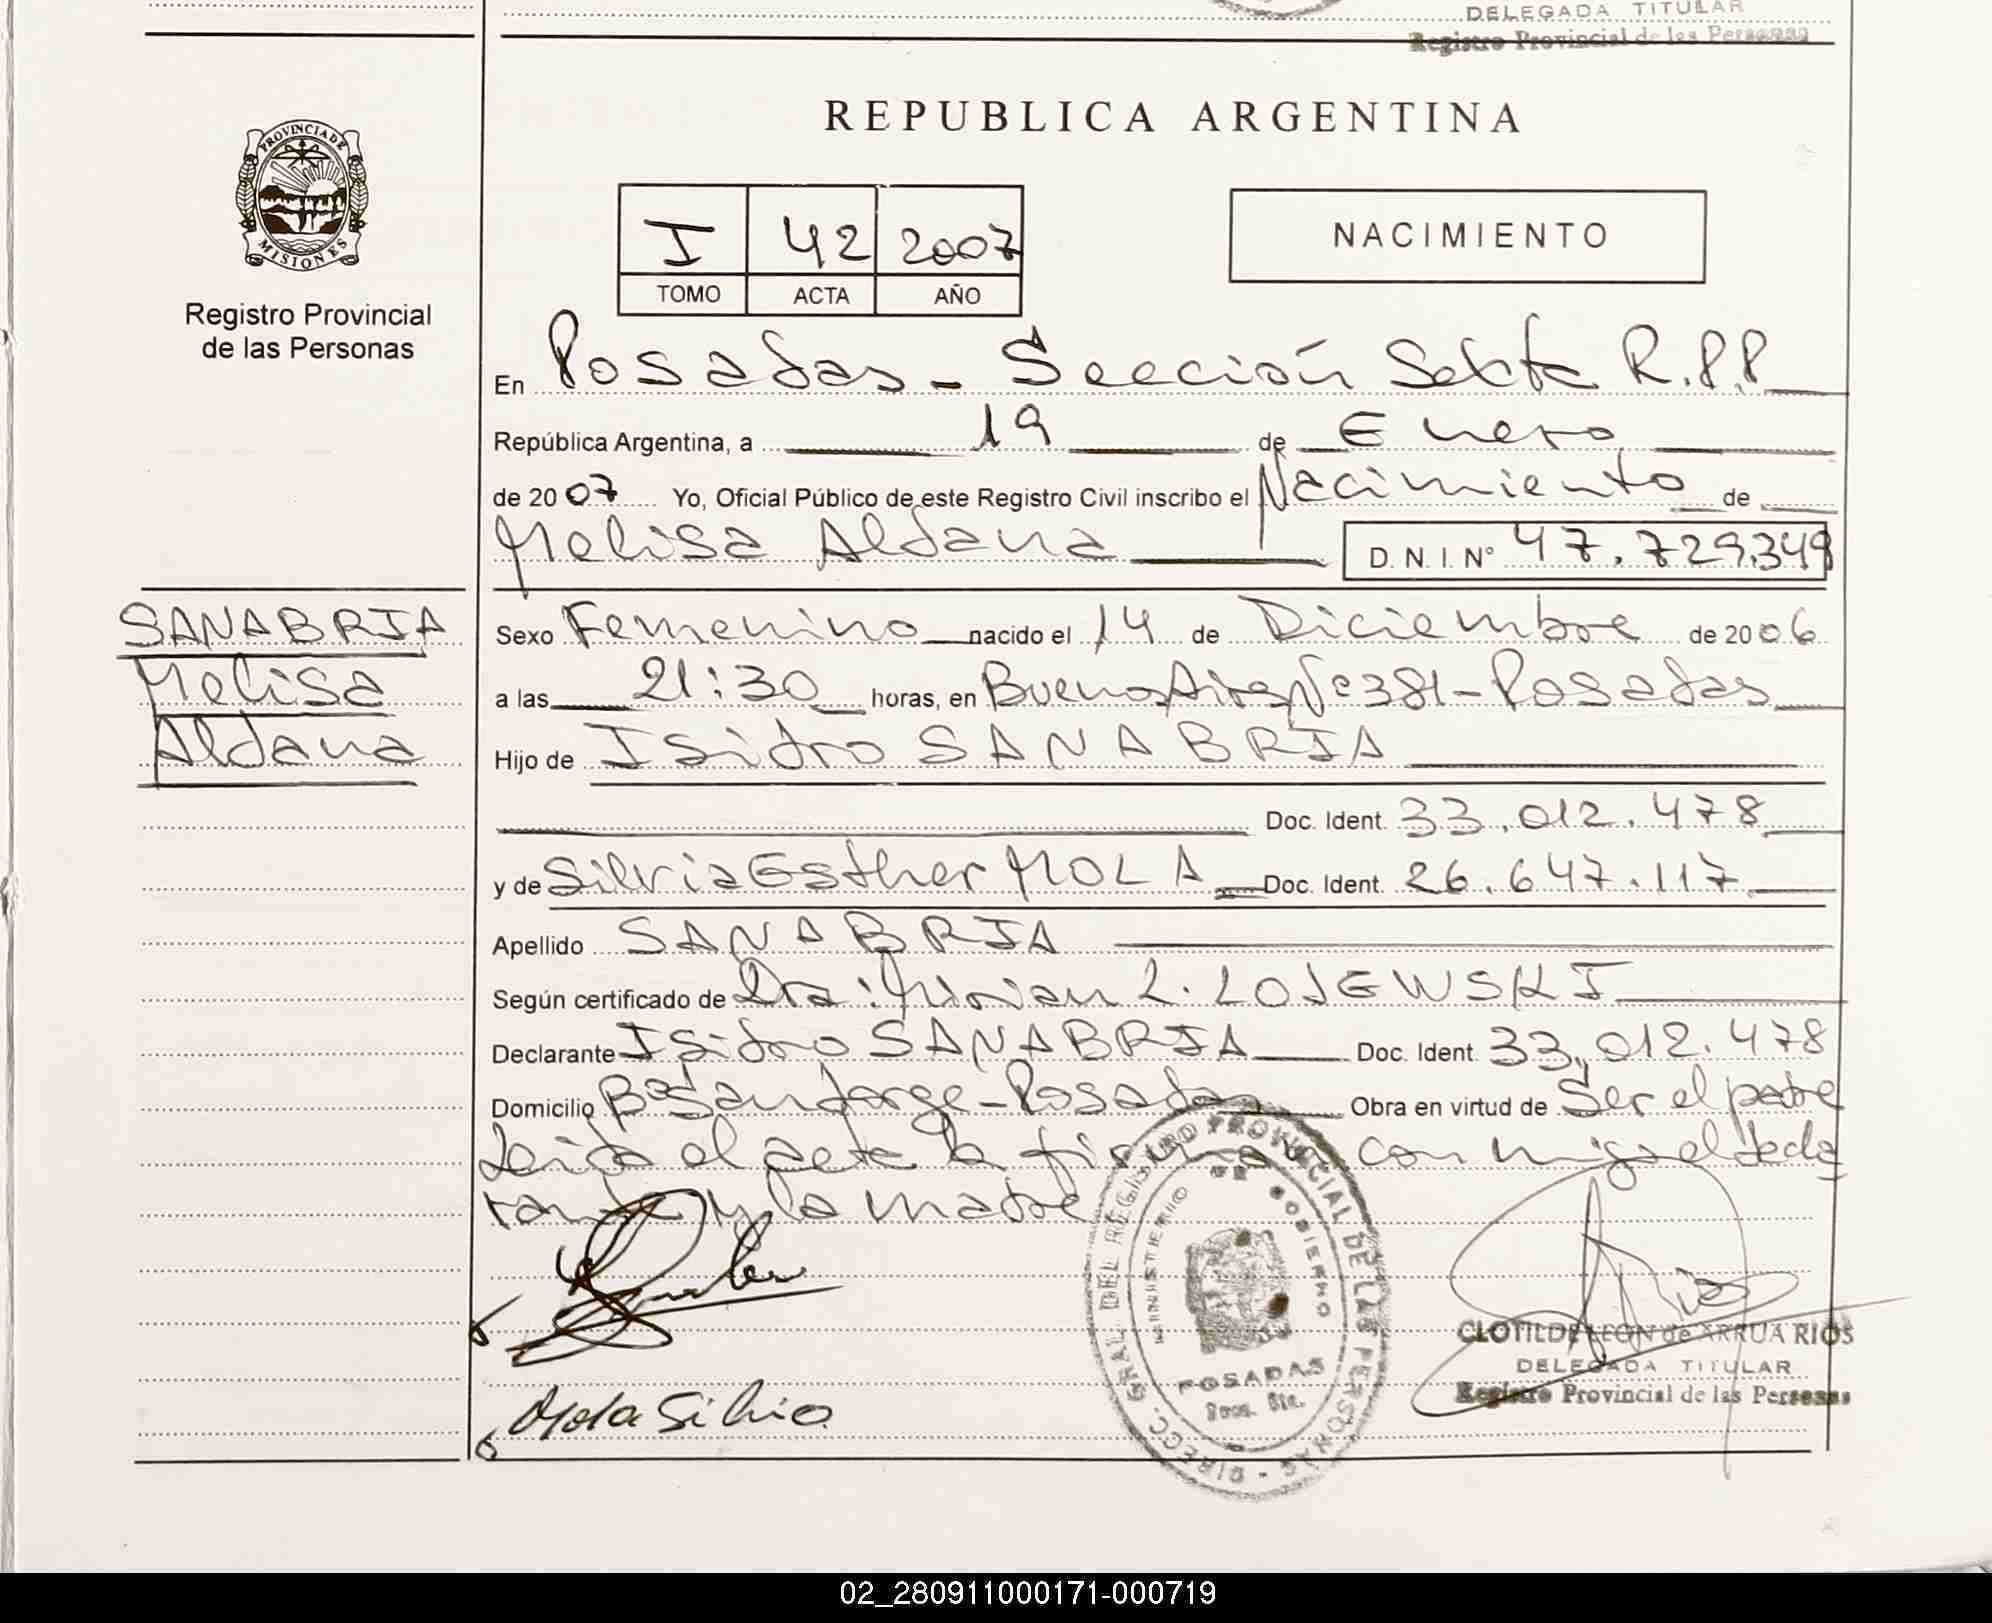 DELEGADA TITULAR
Registro Provincial de las Personas
PROVINCIA DE
MISIONES
Registro Provincial
de las Personas
REPUBLICA ARGENTINA
I 42 2007
TOMO ACTA AÑO
NACIMIENTO
En Posadas - Sección Sexta R.P.P
República Argentina, a 19 de Enero
de 2007 Yo, Oficial Público de este Registro Civil inscribo el Nacimiento de
Melisa Aldana D. N. I. N° 47.729.349
SANABRIA
Melisa
Aldana
Sexo Femenino nacido el 14 de Diciembre de 2006
a las 21:30 horas, en Buenos Aires Nº 381 - Posadas
Hijo de Isidro SANABRIA
Doc. Ident. 33.012.478
y de Silvia Esther MOLA Doc. Ident. 26.647.117
Apellido SANABRIA
Según certificado de Dra: Mirian L. LOJEWSKI
Declarante Isidro SANABRIA Doc. Ident. 33.012.478
Domicilio Bº San Jorge - Posadas Obra en virtud de Ser el padre
Leída el acta la firma con migo el decla
rante y la madre
Mola Silvia
DIRECC. GRAL. DEL REGISTRO PROVINCIAL DE LAS PERSONAS
MINISTERIO DE GOBIERNO
POSADAS
Secc. 6ta.
CLOTILDE LEON de ARRUA RIOS
DELEGADA TITULAR
Registro Provincial de las Personas
02_280911000171-000719